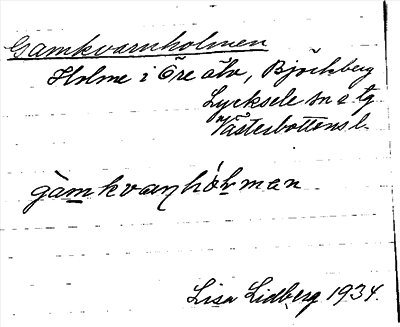 Gamkvarnholmen
Holme i Öre älv, Björkberg
Lycksele sn o tg
Västerbottens l.
gamkvaɳhólman
Lisa Lidberg 1934.